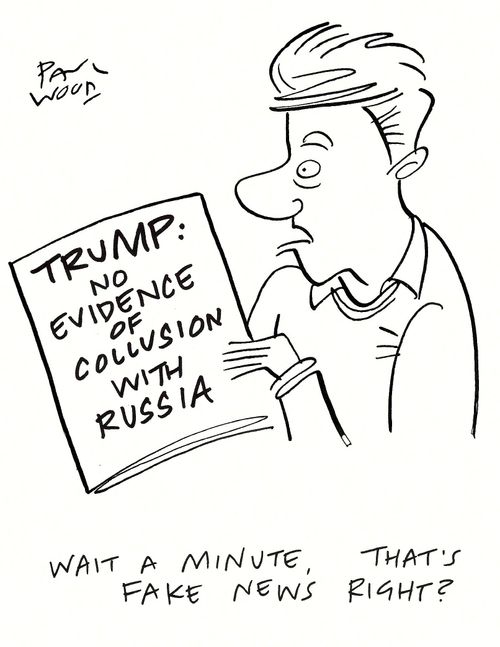 PAUL
WOOD
TRUMP:
NO
EVIDENCE
OF
COLLUSION
WITH
RUSSIA
WAIT A MINUTE, THAT'S
FAKE NEWS RIGHT?